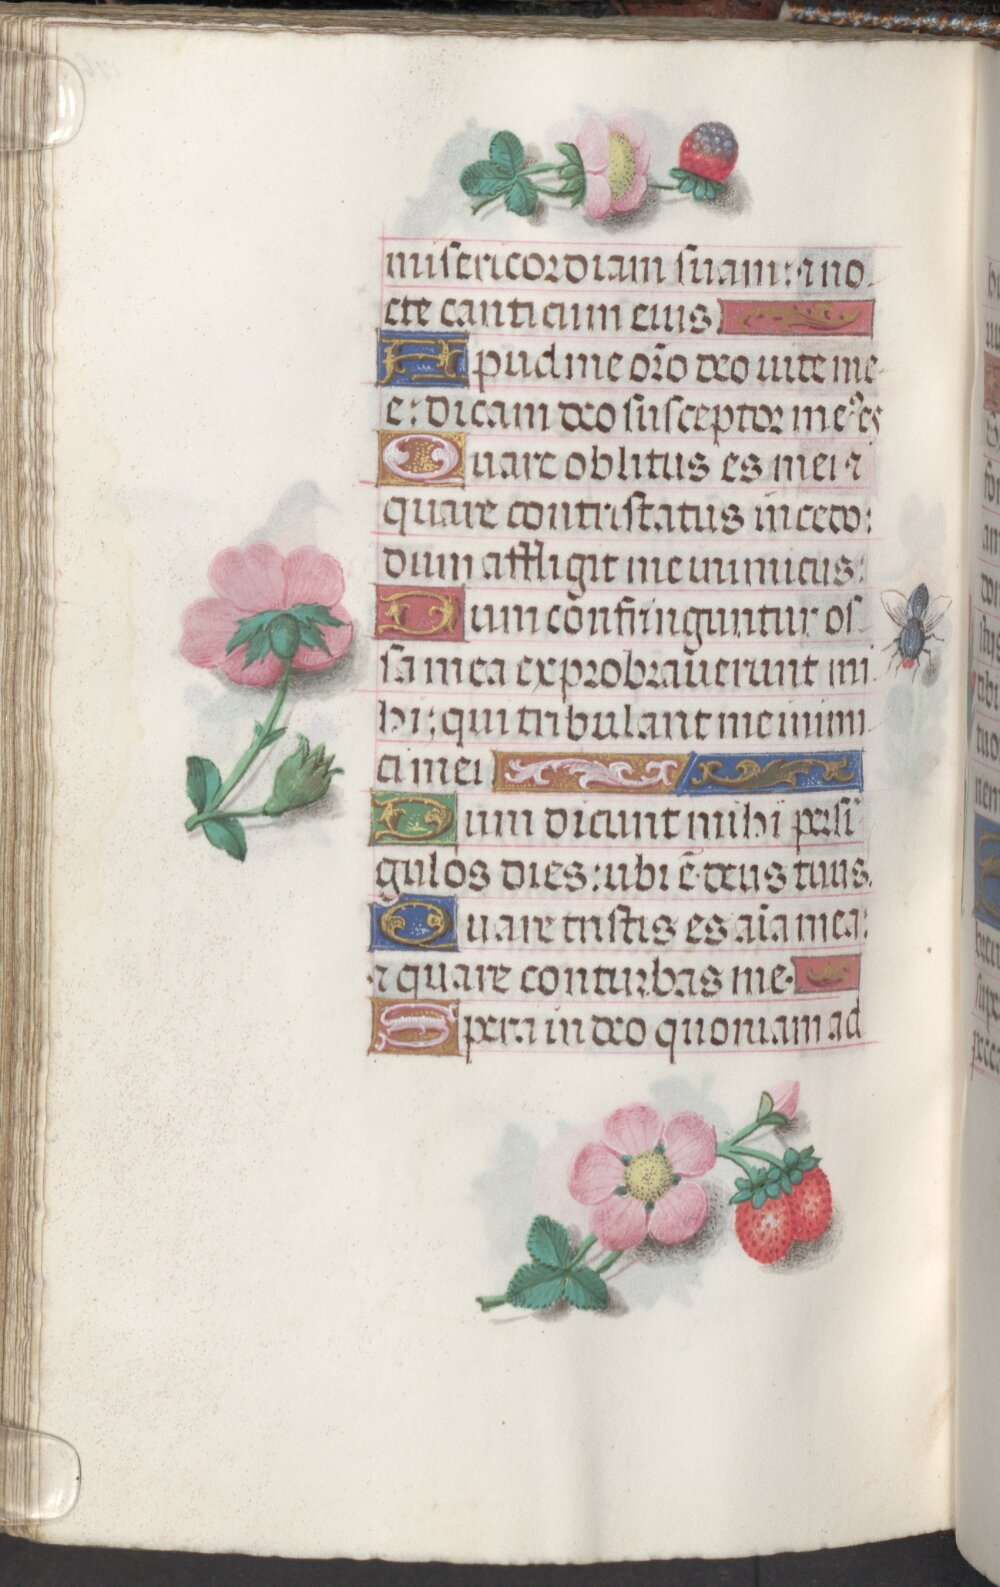 misericordiam suam: ⁊ no
cte canticum eius
Apud me orō deo uite me
e: dicam deo susceptor meꝰ es
Quare oblitus es mei ⁊
quare contristatus incedo:
dum affligit me inimicus:
Dum confringuntur os
sa mea exprobrauerunt mi
hi: qui tribulant me inimi
ci mei
Dum dicunt mihi per si
gulos dies: ubi ē deus tuus.
Quare tristis es aīa mea:
⁊ quare conturbas me.
Spera in deo quoniam ad